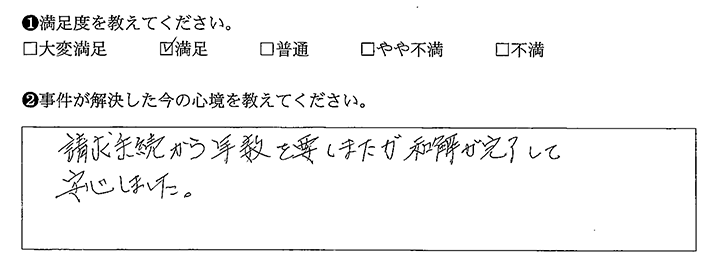 ❶満足度を教えてください。
□大変満足 ☑満足 □普通 □やや不満 □不満
❷事件が解決した今の心境を教えてください。
請求手続から年数を要しましたが和解が完了して
安心しました。